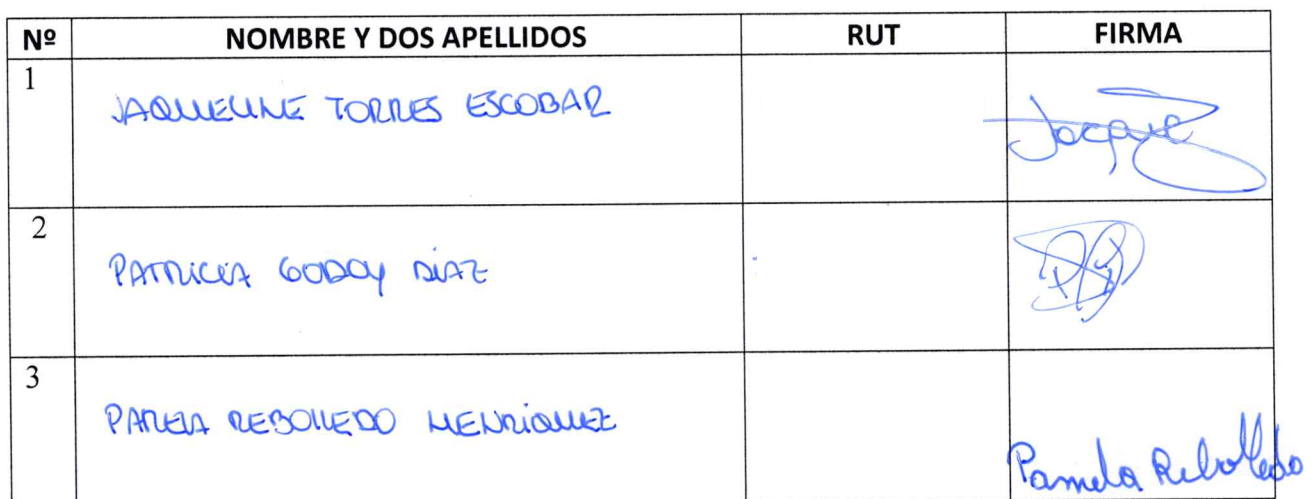 Nº NOMBRE Y DOS APELLIDOS RUT FIRMA
1 JAQUELINE TORRES ESCOBAR Jacque
2 PATRICIA GODOY DÍAZ
3 PAMELA REBOLLEDO HENRIQUEZ Pamela Rebolledo